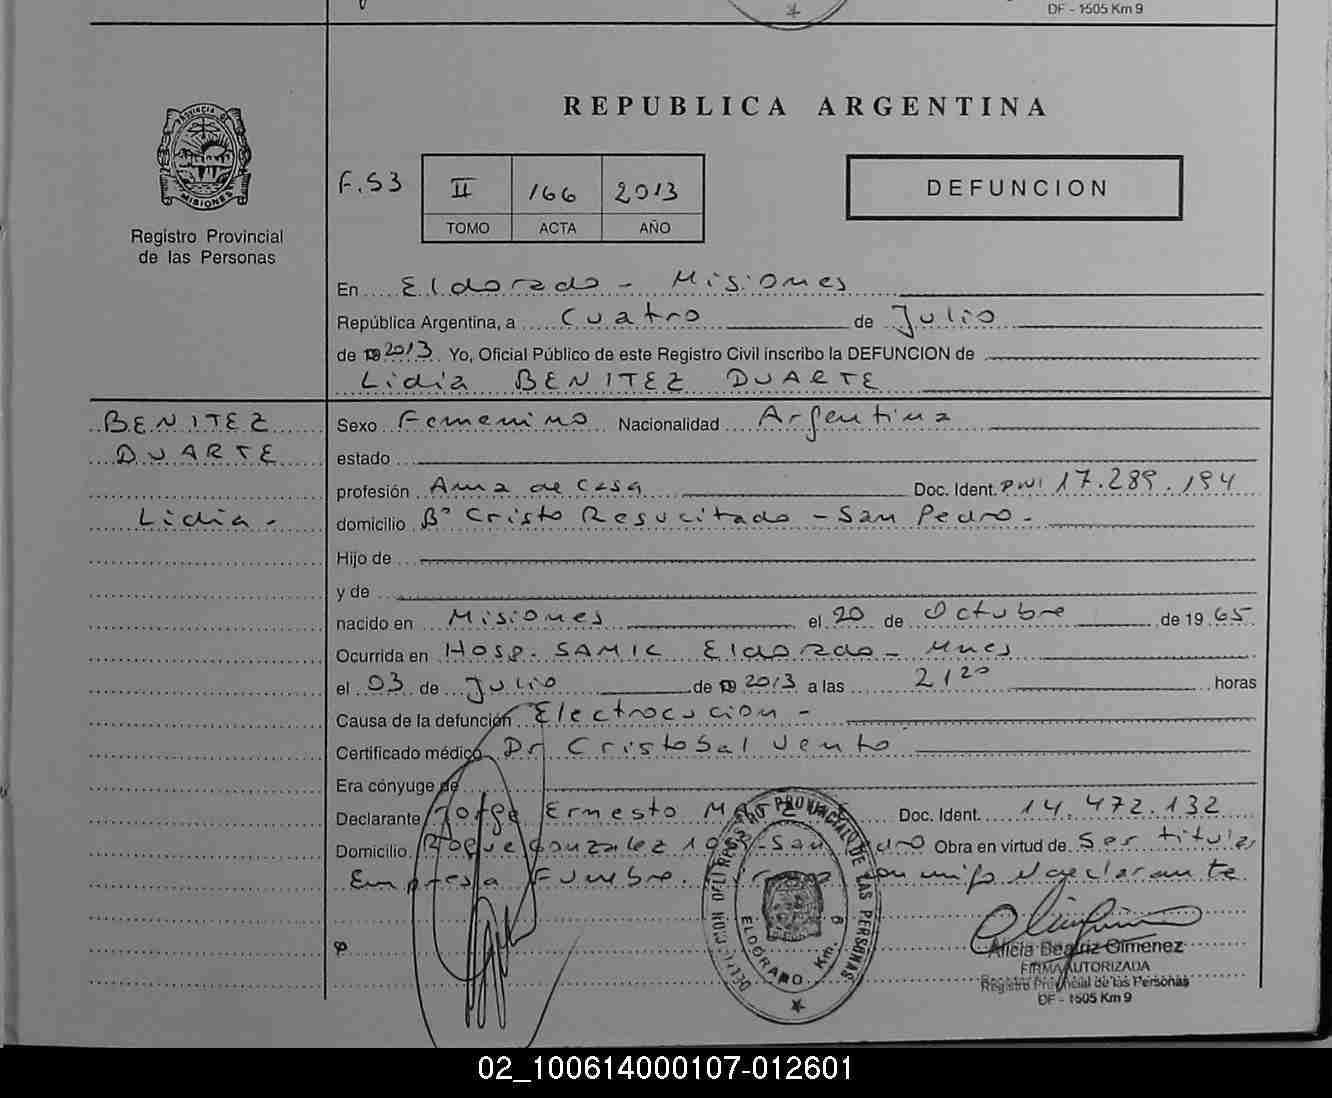 DF - 1505 Km 9
REPUBLICA ARGENTINA
PROVINCIA DE
MISIONES
Registro Provincial
de las Personas
F.53
II 166 2013
TOMO ACTA AÑO
DEFUNCION
En Eldorado - Misiones
República Argentina, a cuatro de Julio
de 2013. Yo, Oficial Público de este Registro Civil inscribo la DEFUNCION de
Lidia BENITEZ DUARTE
BENITEZ
DUARTE
Lidia.-
Sexo Femenino Nacionalidad Argentina
estado
profesión Ama de casa Doc. Ident. DNI 17.289.194
domicilio Bº Cristo Resucitado - San Pedro.
Hijo de
y de
nacido en Misiones el 20 de Octubre de 1965
Ocurrida en Hosp. SAMIC Eldorado - Mnes
el 03 de Julio de 2013 a las 21²⁰ horas
Causa de la defunción Electrocución -
Certificado médico Dr Cristobal Vento
Era cónyuge de
Declarante Jorge Ernesto Doc. Ident. 14.472.132
Domicilio Roque Gonzalez San Pedro Obra en virtud de Ser titular
Empresa Fúnebre. conmigo el declarante
REGISTRO PROVINCIAL DE LAS PERSONAS
ELDORADO Km. 9
Alicia Beatriz Gimenez
FIRMA AUTORIZADA
Registro Provincial de las Personas
DF - 1505 Km 9
02_100614000107-012601